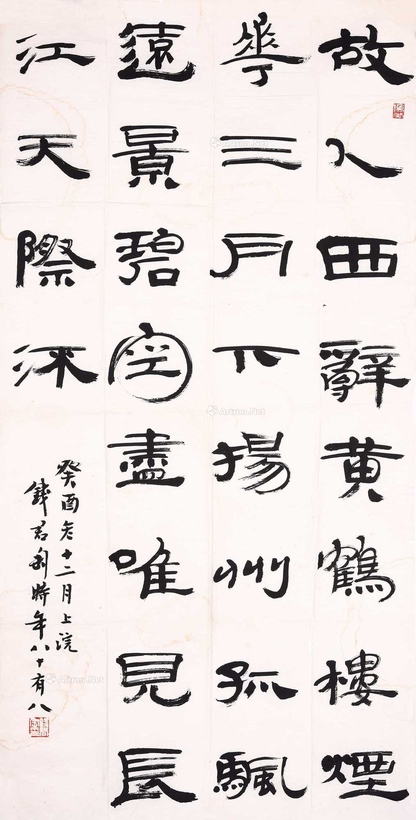 故人西辭黄鶴樓煙
華三月下揚州孤颿
遠景碧空盡唯見長
江天際流
癸酉冬十二月上浣
錢君匋時年八十有八
Artron.Net